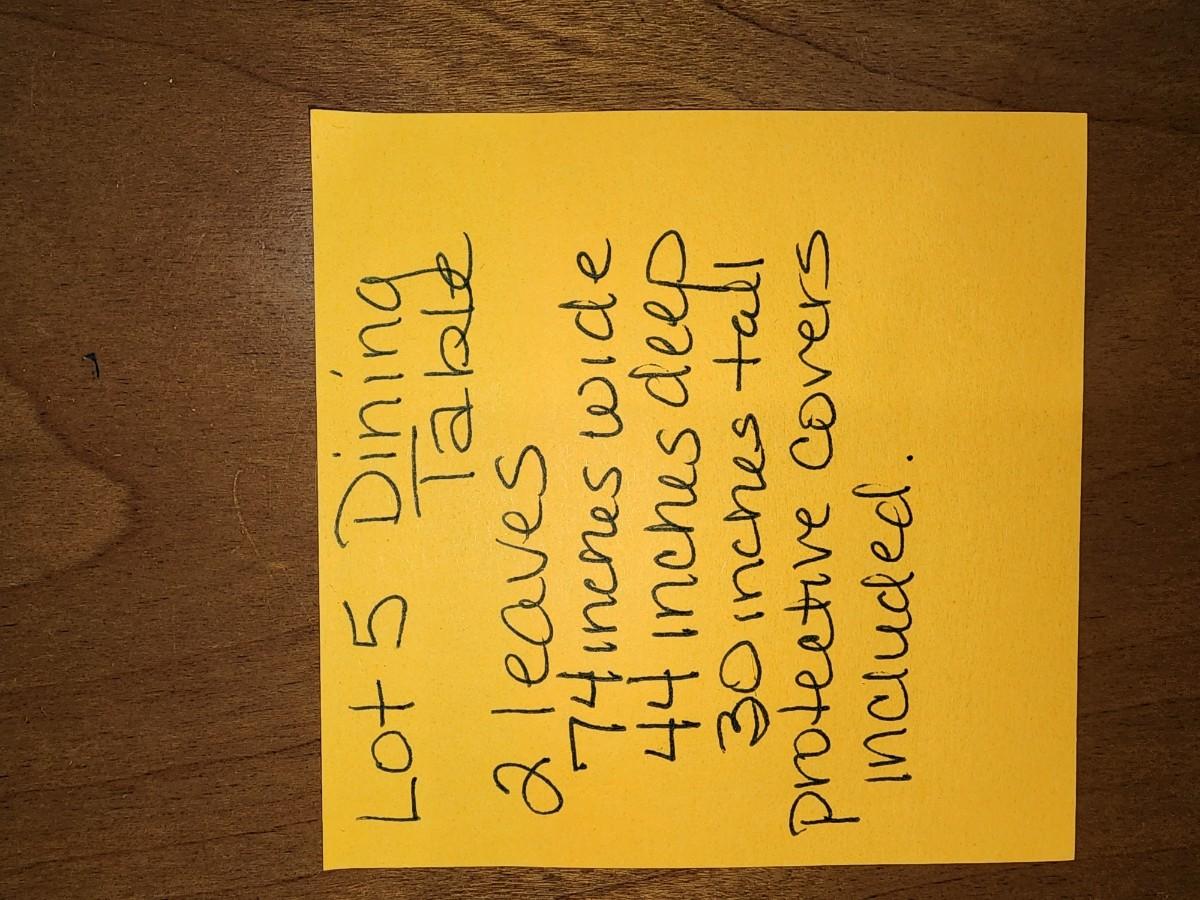 Lot 5 Dining
Table
2 leaves
74 inches wide
44 inches deep
30 inches tall
protective covers
included.